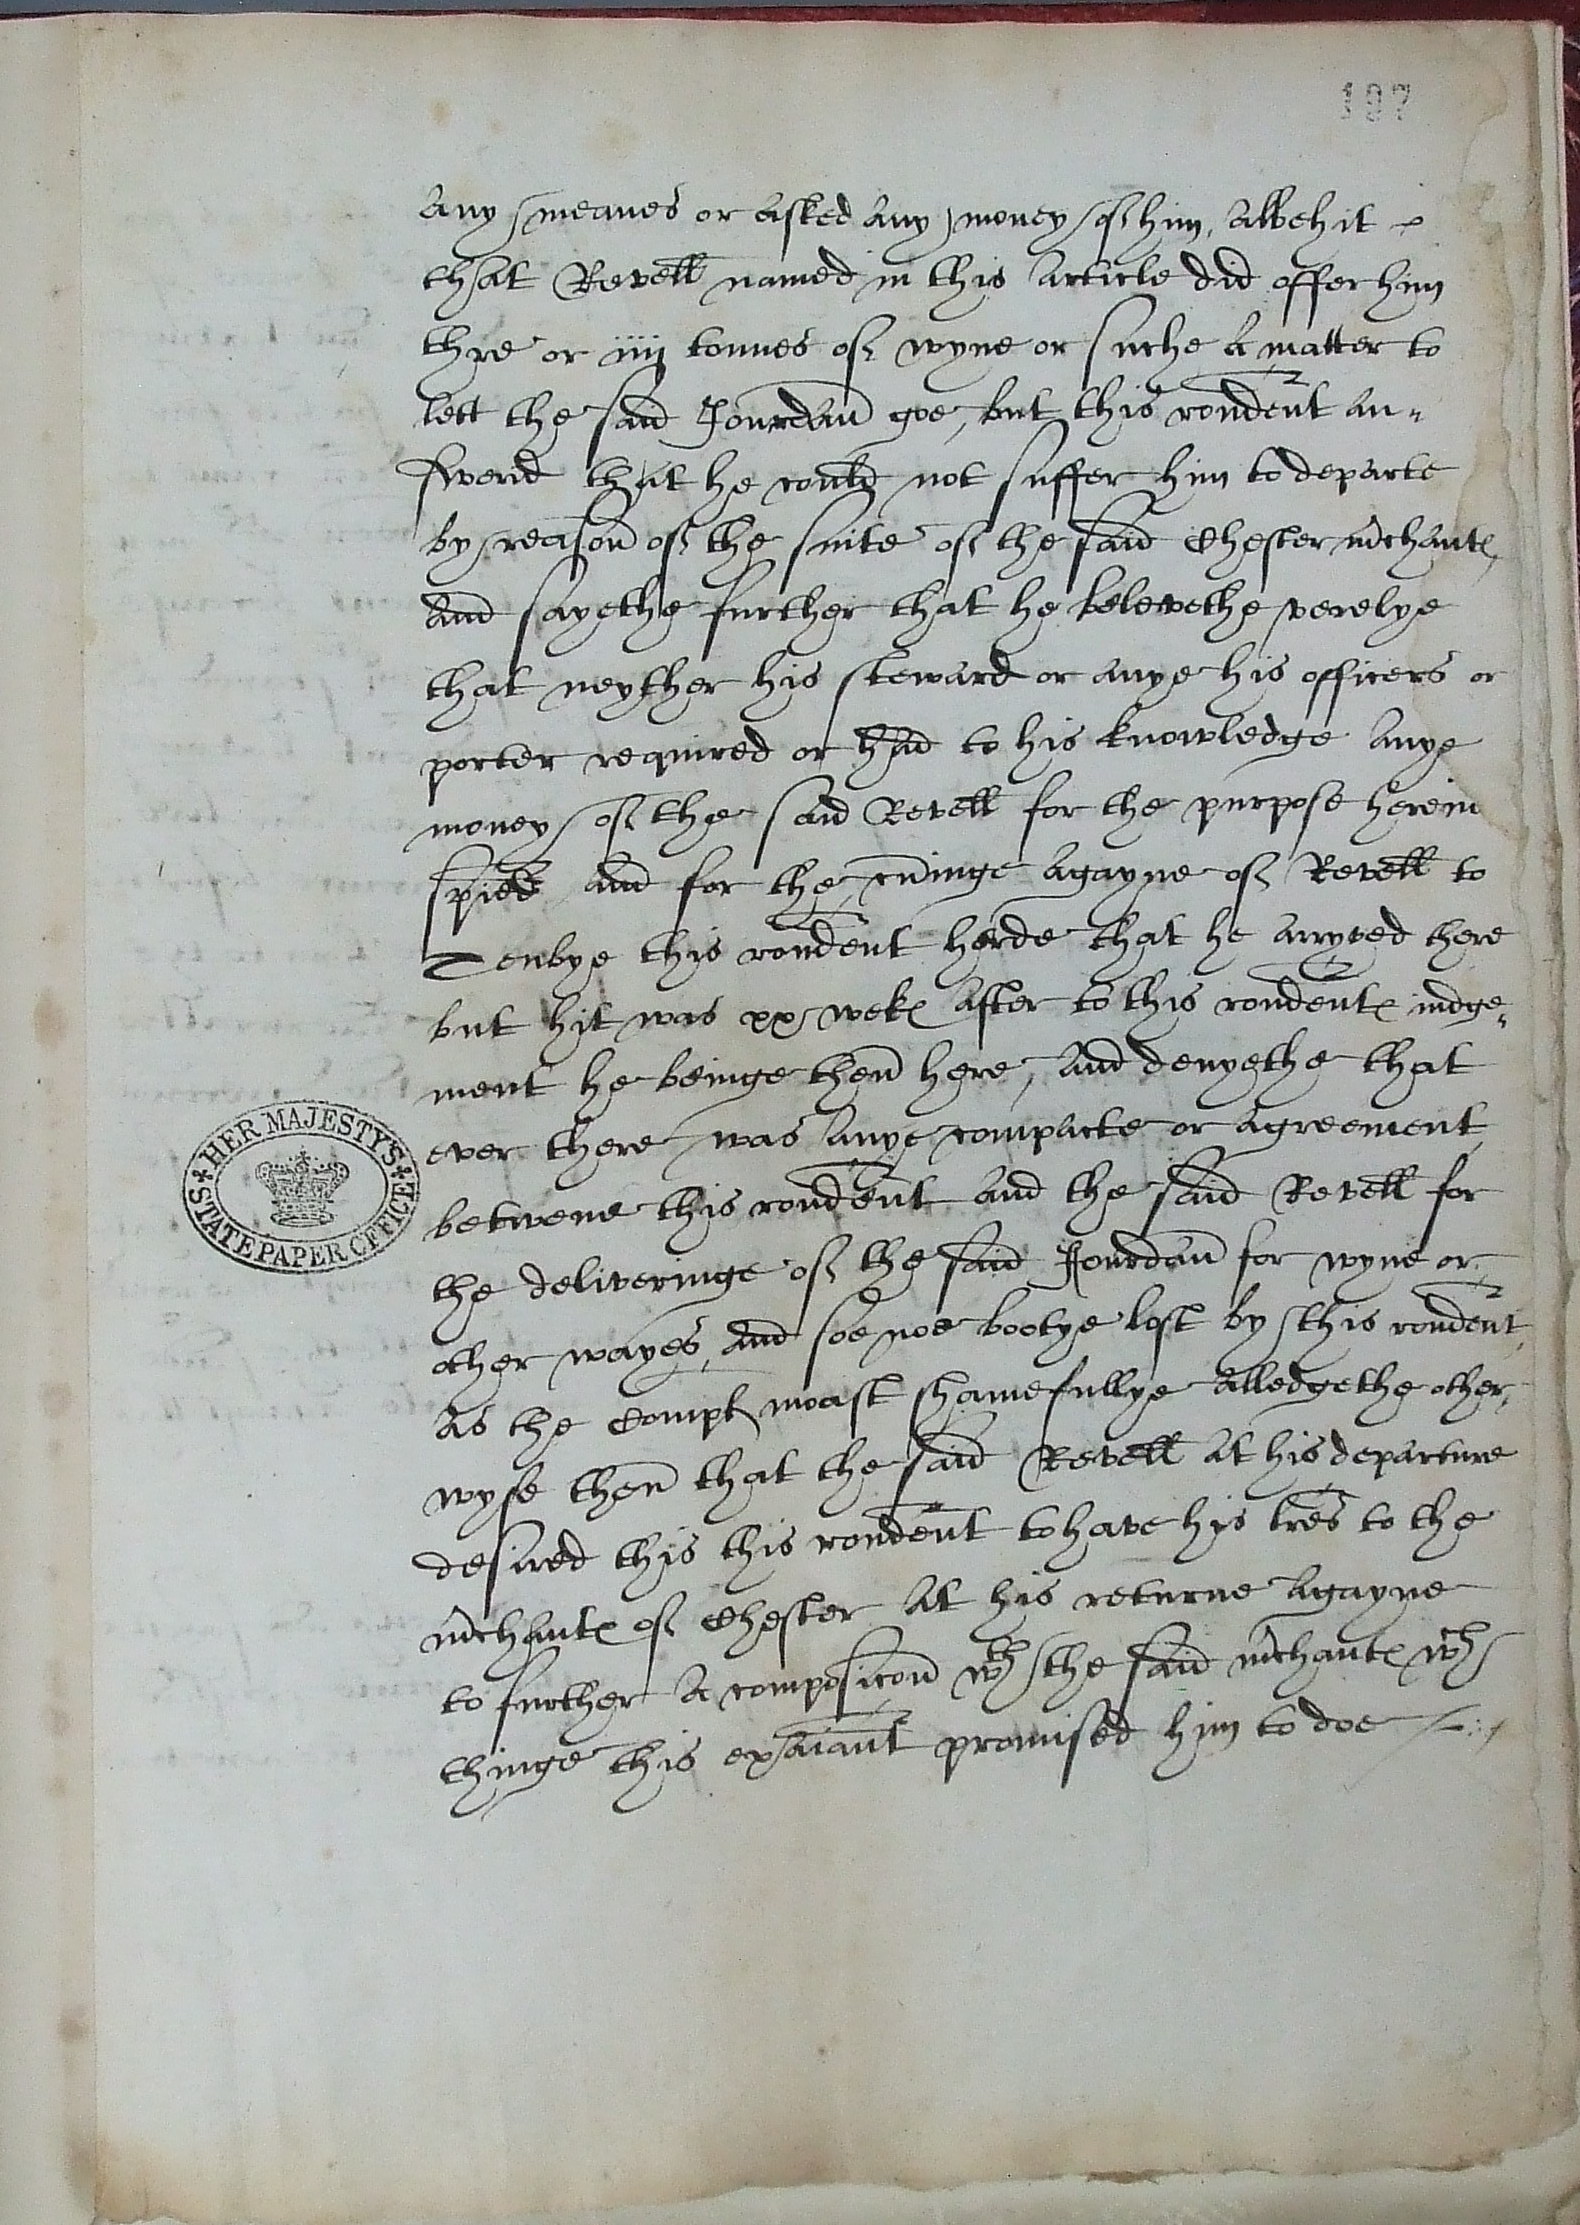 197
any meanes or asked any money of him, Albehit
that Revell named in this Article did offer him
thre or iiij tonnes of wyne or suche a matter to
lett the said Jourdan goe, but this rondent an=
swerid that he could not suffer him to departe
by reason of the suite of the said Chester mchantes
And sayethe further that he belevethe verelye
that neyther his steward or anye his officers or
porter required or had to his knowledge anye
money of the said Revell for the purpose herein
spied and for the cminge agayne of Revell to
Tenbye this rondent herde that he arryved there
but hit was xx wekes after to this rondentes iudge=
ment he beinge then here, And denyethe that
ever there was anye compacte or agreement
betwene this rondent and the said Revell for
the deliveringe of the said Jourdan for wyne or
other wayes, and soe noe bootye lost by this rondent
as the Compl moast shamefullye alledgethe other=
wyse then that the said Revell at his departure
desired this this rondent to have his lres to the
mchantes of Chester at his returne agayne
to further a composicon wth the said mchantes wch
thinge this exaiant promised him to doe
HER MAJESTYS
STATE PAPER OFFICE